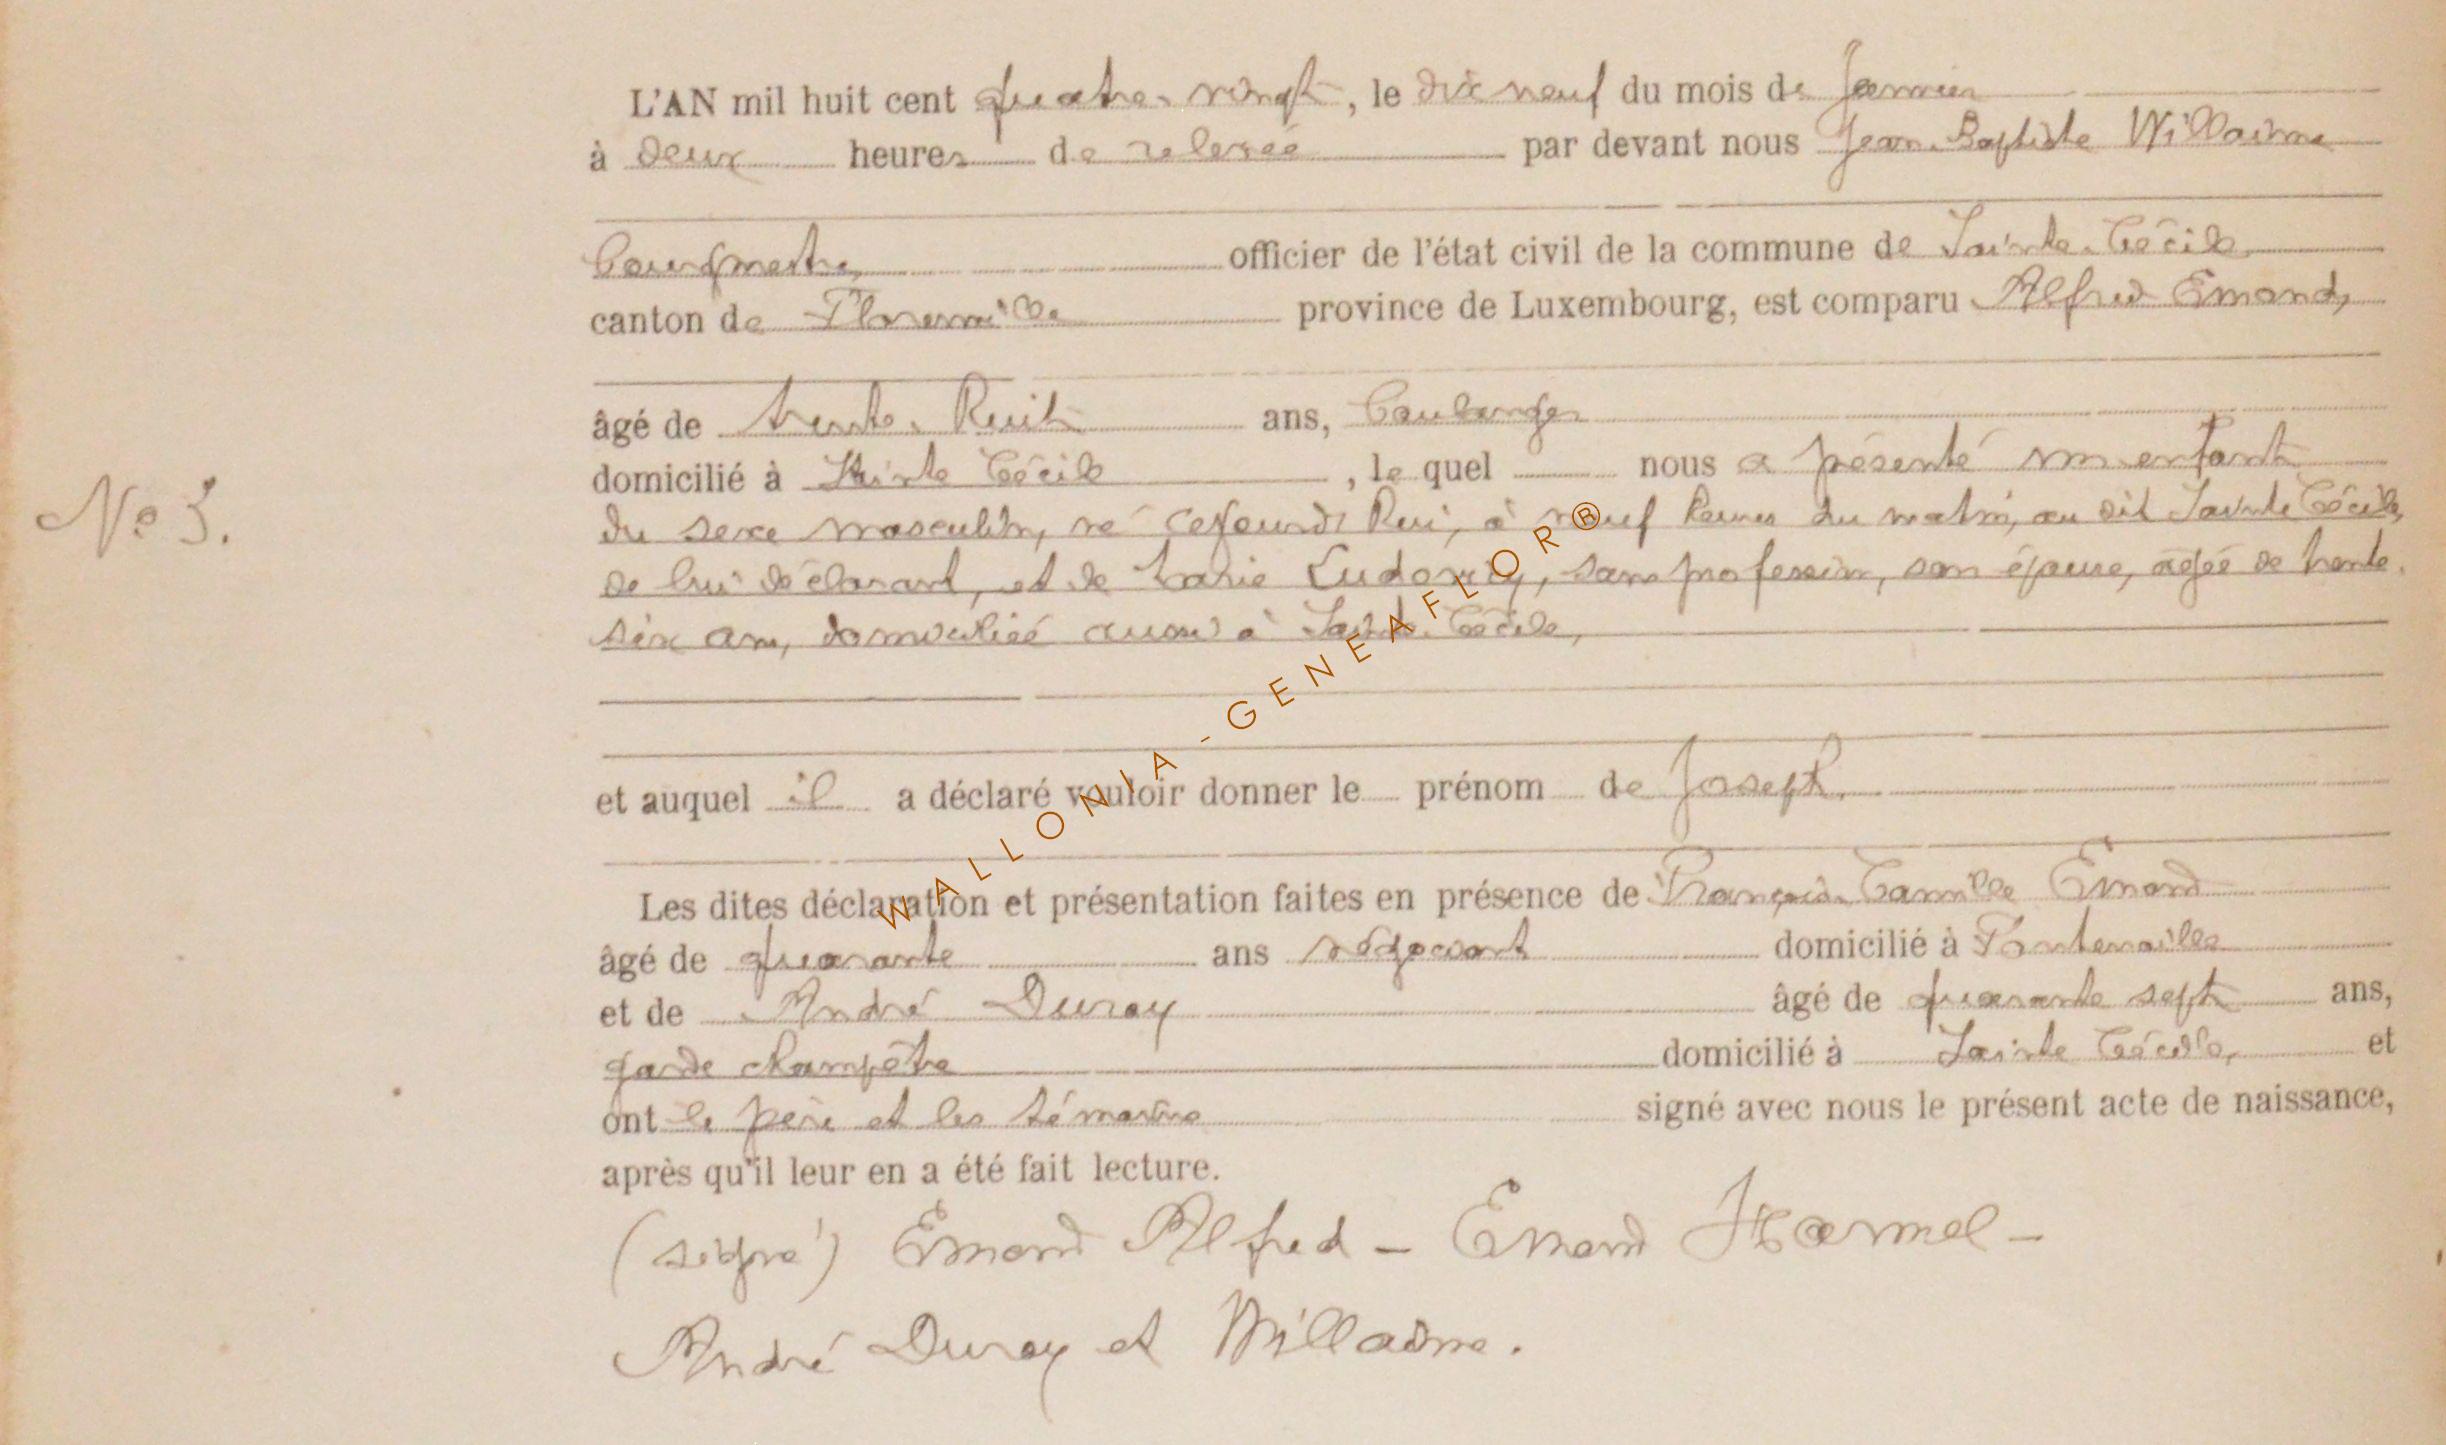 L'AN mil huit cent quatre-vingt, le dix neuf du mois de Janvier
à deux heures de relevée par devant nous Jean-Baptiste Willaime
bourgmestre, officier de l'état civil de la commune de Sainte-Cécile,
canton de Florenville province de Luxembourg, est comparu Alfred Emond,
âgé de trente-huit ans, boulanger
domicilié à Sainte Cécile, le quel nous a présenté un enfant
N° 5.
du sexe masculin, né cejourd'hui, à neuf heures du matin, au dit Sainte Cécile,
de lui déclarant, et de Marie Ludovicy, sans profession, son épouse, âgée de trente-
six ans, domiciliée aussi à Sainte-Cécile,
et auquel il a déclaré vouloir donner le prénom de Joseph.
Les dites déclaration et présentation faites en présence de François-Camille Emond
âgé de quarante ans négociant domicilié à Fontenoille
et de André Duroy âgé de quarante sept ans,
garde champêtre domicilié à Sainte Cécile, et
ont le père et les témoins signé avec nous le présent acte de naissance,
après qu'il leur en a été fait lecture.
(signé) Emond Alfred - Emond Harmel -
André Duroy et Willaime.
WALLONIA-GENEAFLOR®